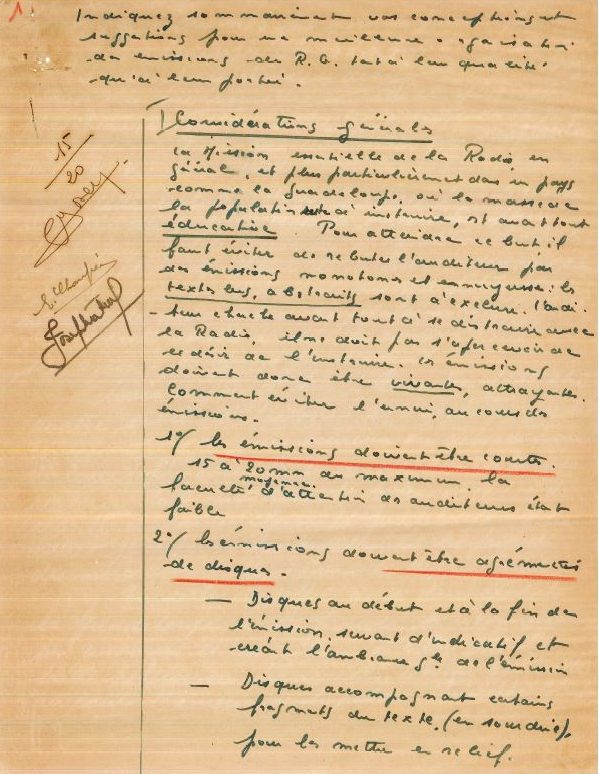 1
Indiquez sommairement vos conceptions et
suggestions pour une meilleure organisation
des émissions des R.G. tant à leur qualité
qu'à leur portée.
15
20
I Considérations générales
La Mission essentielle de la Radio, en
général, et plus particulièrement dans un pays
comme la Guadeloupe, où la masse de
la population reste à instruire, est avant tout
éducative. Pour atteindre ce but, il
faut éviter de rebuter l'auditeur par
des émissions monotones et ennuyeuses : les
textes lus, abstraits sont à exclure. L'audi-
teur cherche avant tout à se distraire avec
la Radio, il ne doit pas s'apercevoir de
ce désir de l'instruire. Les émissions
doivent donc être vivantes, attrayantes.
Comment éviter l'ennui, au cours des
émissions.
1°/ les émissions doivent être courtes.
15 à 20 mn au maximum. la
faculté moyenne d'attention des auditeurs étant
faible
2°/ les émissions doivent être agrémentées
de disques.
— Disques au début et à la fin de
l'émission, servant d'indicatif et
créant l'ambiance gle de l'émission
— Disques accompagnant certains
fragments du texte. (en sourdine),
pour les mettre en relief.